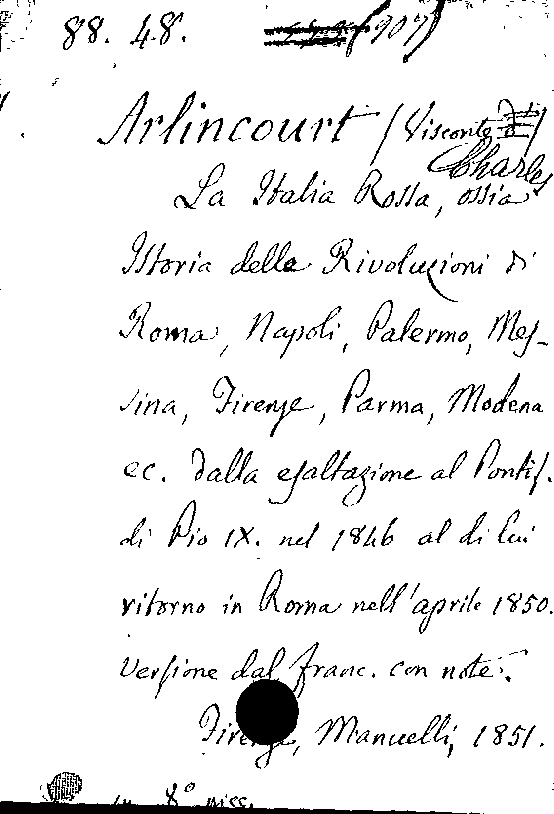 88. 48. (907)
Arlincourt (Visconte d')
Charles
La Italia Rossa, ossia
Istoria delle Rivoluzioni di
Roma, Napoli, Palermo, Mes-
sina, Firenze, Parma, Modena
ec. dalla esaltazione al Pontif.
di Pio IX. nel 1846 al di lui
ritorno in Roma nell'aprile 1850.
Versione dal franc. con note.
Firenze, Manuelli, 1851.
in 8° picc.